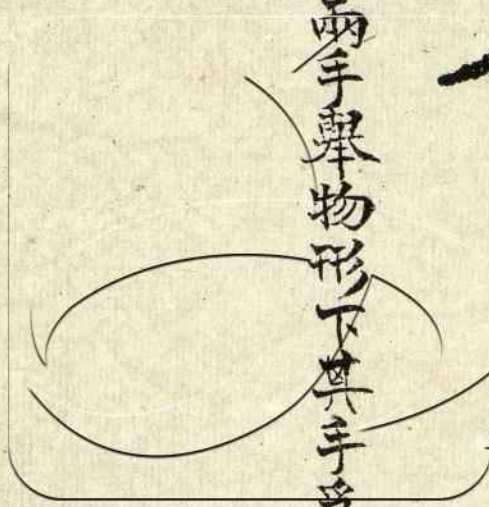 兩手舉物形下其手